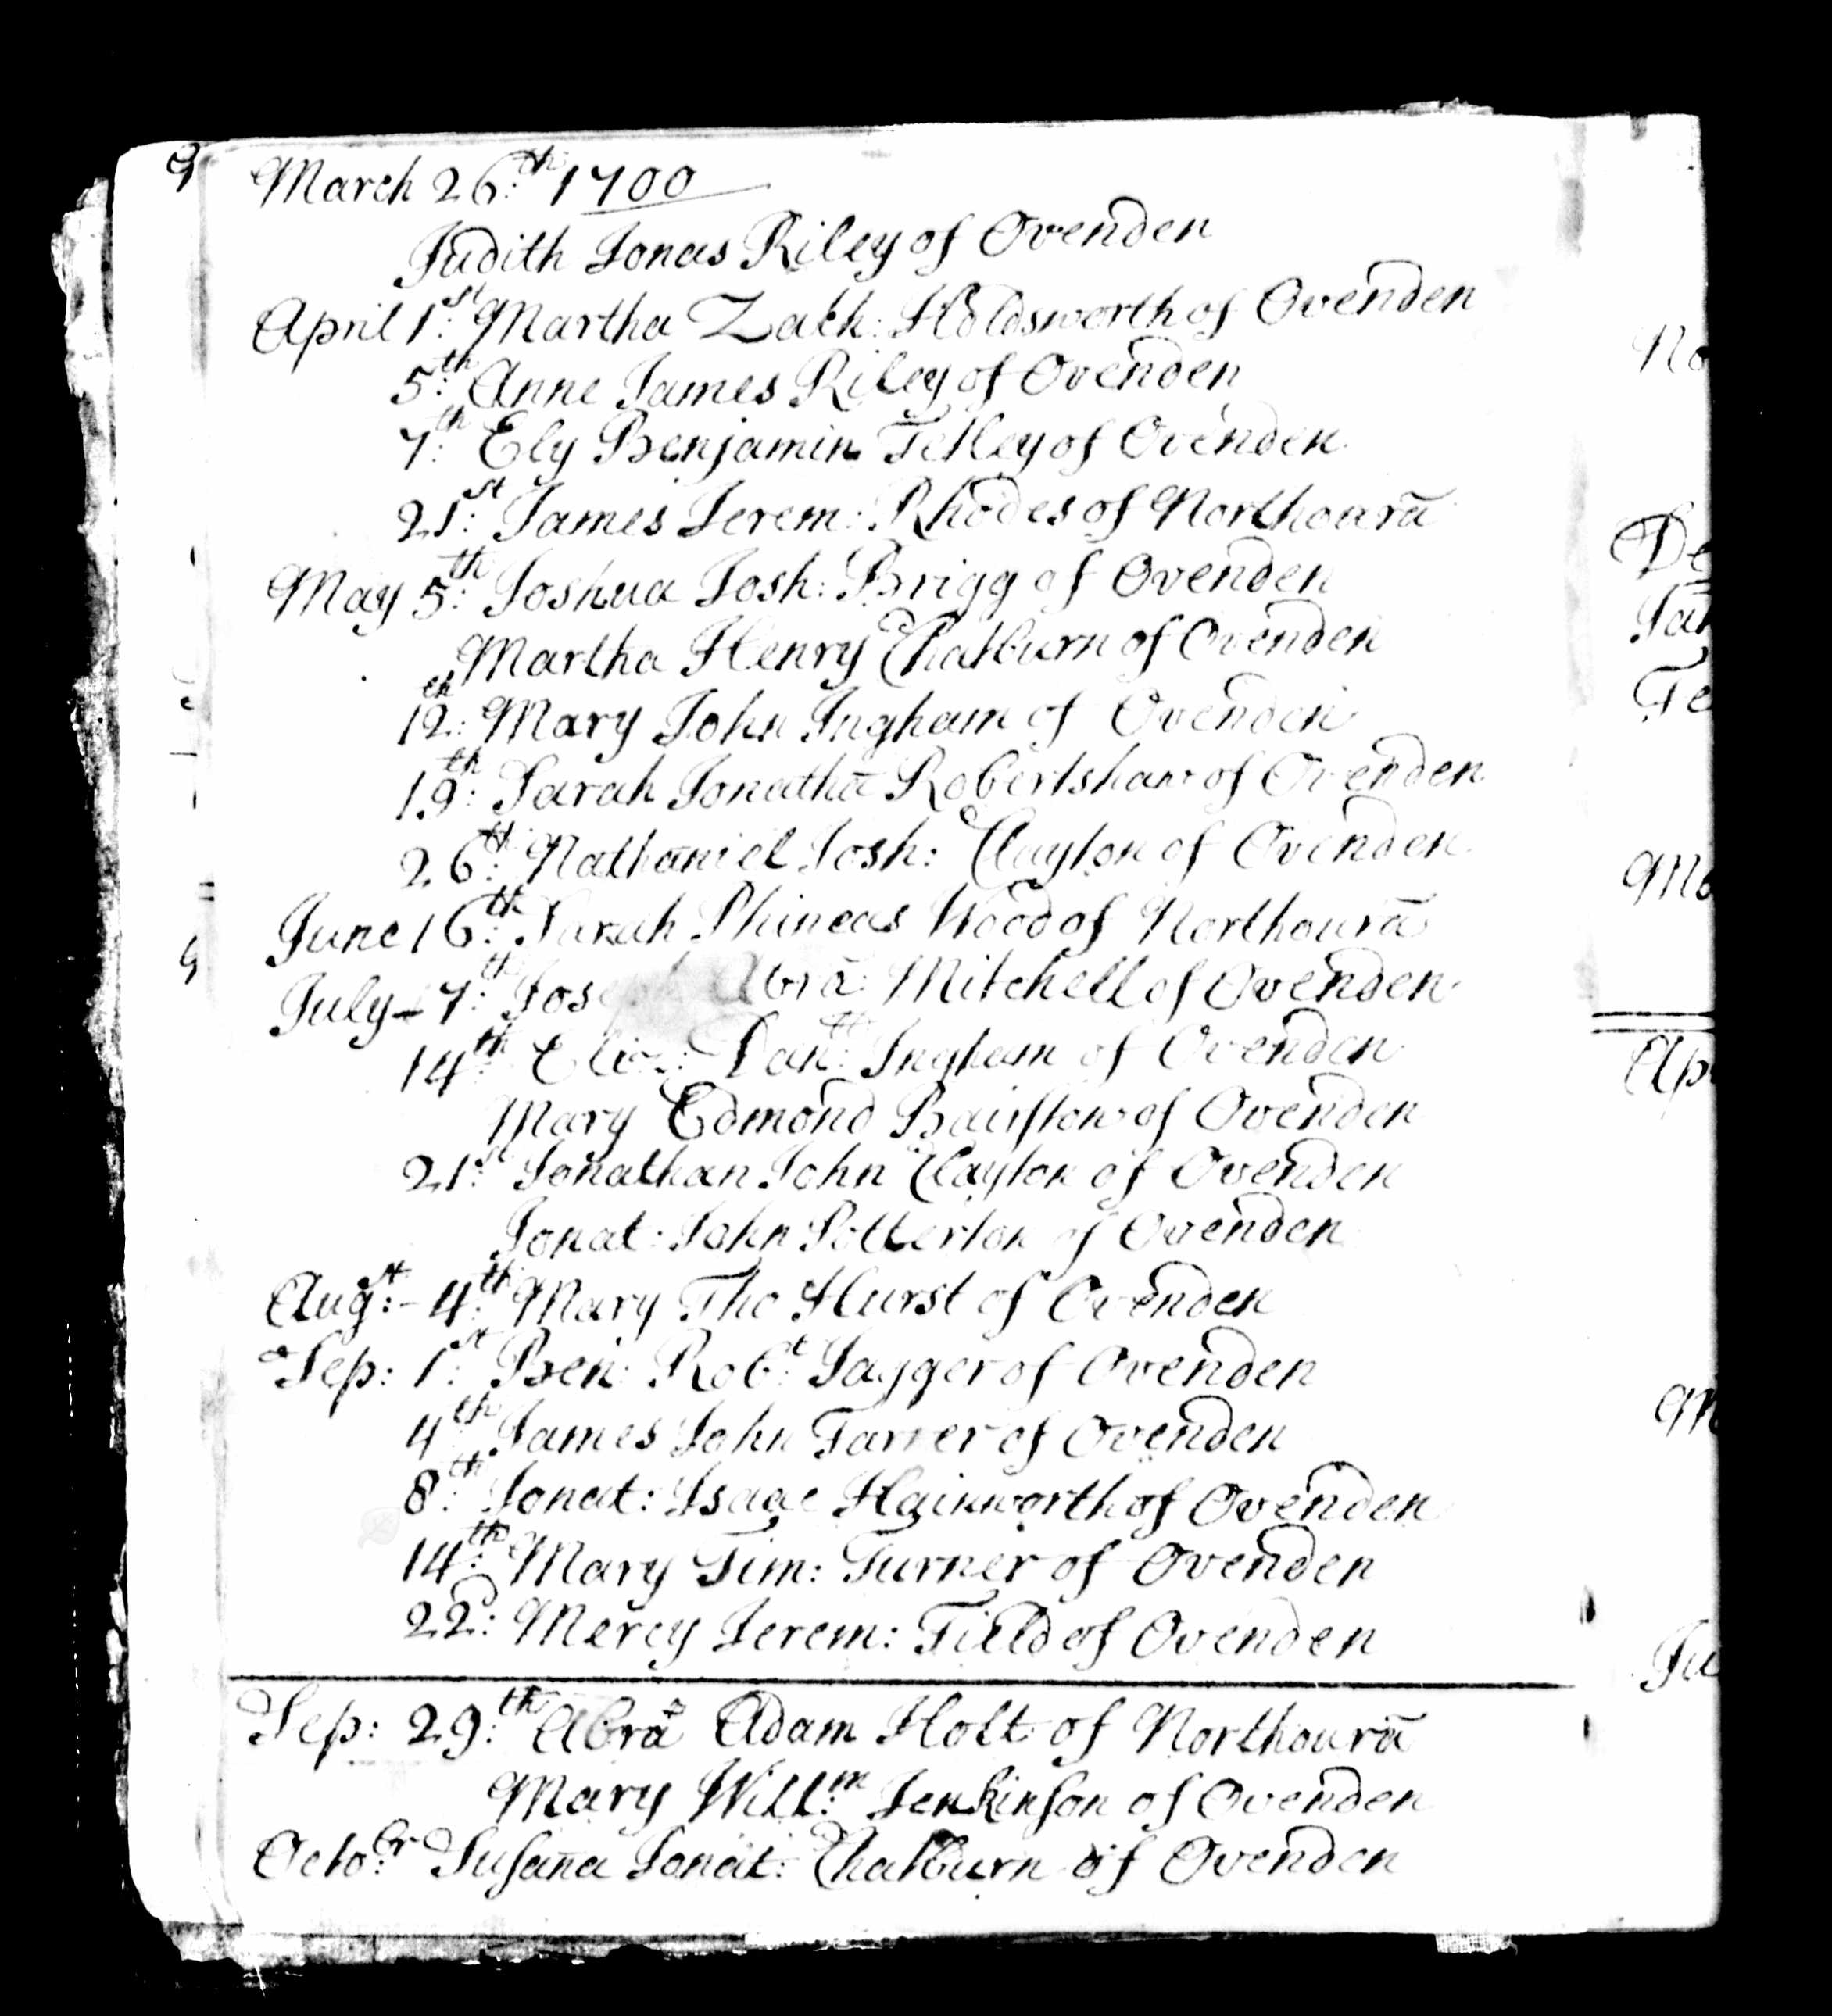 March 26:th 1700
Judith Jonas Riley of Ovenden
April 1:st Martha Zach: Holdsworth of Ovenden
5:th Anne James Riley of Ovenden
7:th Ely Benjamin Tetley of Ovenden
21:st James Jerem: Rhodes of Northourā
May 5:th Joshua Josh: Brigg of Ovenden
Martha Henry Chatburn of Ovenden
12:th Mary John Ingham of Ovenden
19:th Sarah Jonathā Robertshaw of Ovenden
26:th Nathaniel Josh: Clayton of Ovenden
June 16:th Sarah Phineas Wood of Northourā
July - 7:th Joseph Abrā: Mitchell of Ovenden
14:th Eliz: Dan:ll Ingham of Ovenden
Mary Edmond Bairstow of Ovenden
21:st Jonathan John Clayton of Ovenden
Jonat: John Potterton of Ovenden
Aug:st - 4:th Mary Tho Hurst of Ovenden
Sep: 1:st Ben: Rob:t Jagger of Ovenden
4:th James John Farrer of Ovenden
8:th Jonat: Isaac Hainworth of Ovenden
14:th Mary Tim: Turner of Ovenden
22:d Mercy Jerem: Field of Ovenden
Sep: 29:th Abrā Adam Holt of Northourā
Mary Will:m Jenkinson of Ovenden
Octo:br Susan̄a Jonat: Chatburn of Ovenden